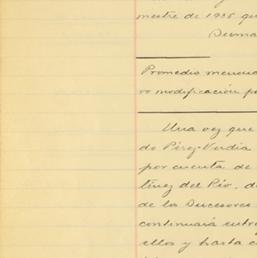 mestre de 1935 qu
Promedio mensua
ro modificación pe
Una vez que
do Pérez-Verdía
por cuenta de
tínez del Río, d
de los Sucesores
continuará entre
ellos y hasta c